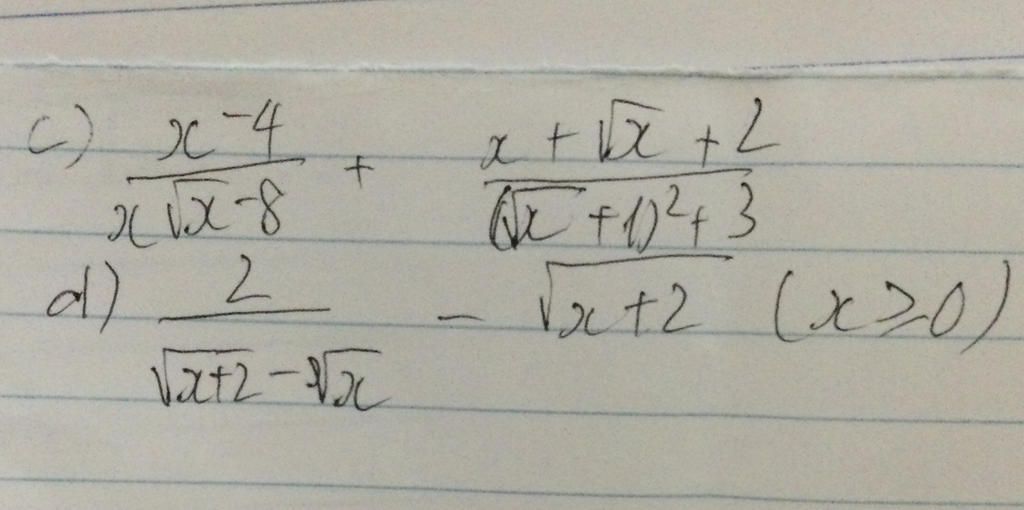 c) \frac{x-4}{x\sqrt{x}-8} + \frac{x+\sqrt{x}+2}{(\sqrt{x}+1)^2+3}
d) \frac{2}{\sqrt{x+2}-\sqrt{x}} - \sqrt{x+2} (x≥0)